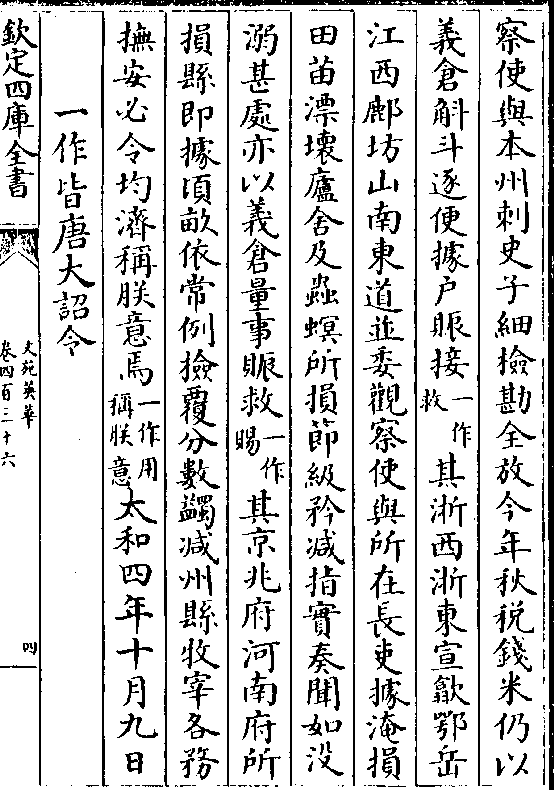 察使與本州刺史子細撿勘全放今年秋税錢米仍以
義倉斛斗逐便據户賑接一作救其浙西浙東宣歙鄂岳
江西鄜坊山南東道並委觀察使與所在長吏據淹損
田苗漂壞廬舍及蟲螟所損節級矜减指實奏聞如没
溺甚處亦以義倉量事賑救一作賜其京兆府河南府所
損縣即據頃畝依常例撿覆分數蠲减州縣牧宰各務
撫安必令均濟稱朕意焉一作用稱朕意太和四年十月九日
一作皆唐大詔令
欽定四庫全書
文苑英華
卷四百三十六
四